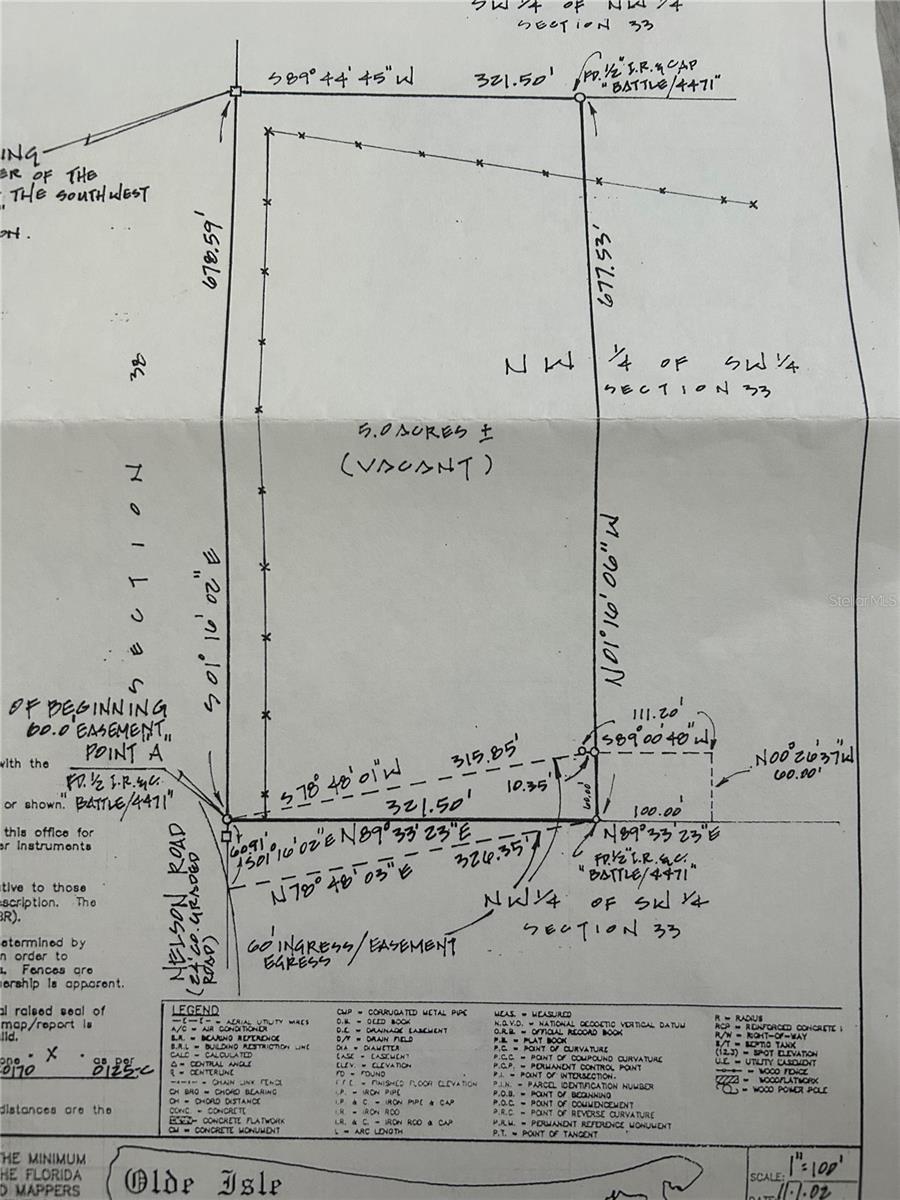 SW 1/4 OF NW 1/4
SECTION 33
S89° 44' 45" W
321.50'
FD. 1/2" I.R. & CAP
"BATTLE/4471"
ER OF THE
THE SOUTHWEST
678.59'
677.53'
NW 1/4 OF SW 1/4
SECTION 33
SECTION 38
5.0 ACRES ±
(VACANT)
S01° 16' 02" E
N01° 16' 06" W
StellarMLS
OF BEGINNING
60.0' EASEMENT,
POINT A"
FD. 1/2 I.R. & C.
"BATTLE/4471"
111.20'
S89° 00' 48" W
N00° 26' 37" W
60.00'
S78° 48' 01" W
315.85'
10.35'
60.00'
321.50'
100.00'
N89° 33' 23" E
N89° 33' 23" E
S01° 16' 02" E
326.35'
N78° 48' 03" E
FD. 1/2" I.R. & C.
"BATTLE/4471"
NW 1/4 OF SW 1/4
SECTION 33
60' INGRESS/EASEMENT
EGRESS
NELSON ROAD
(24' CO. GRADED
ROAD)
with the
or shown.
this office for
er instruments
ative to those
escription. The
BR).
etermined by
n order to
s. Fences are
nership is apparent.
al raised seal of
map/report is
lid.
one X as per
0170 0125-C
distances are the
LEGEND
AERIAL UTILITY WIRES
A/C = AIR CONDITIONER
B.R. = BEARING REFERENCE
B.R.L = BUILDING RESTRICTION LINE
CALC = CALCULATED
Δ = CENTRAL ANGLE
= CENTERLINE
= CHAIN LINK FENCE
CH BRG = CHORD BEARING
CH = CHORD DISTANCE
CONC. = CONCRETE
= CONCRETE FLATWORK
CM = CONCRETE MONUMENT
CMP = CORRUGATED METAL PIPE
D.B. = DEED BOOK
D.E. = DRAINAGE EASEMENT
D/F = DRAIN FIELD
DIA = DIAMETER
EASE = EASEMENT
ELEV. = ELEVATION
FD = FOUND
F.F.E. = FINISHED FLOOR ELEVATION
I.P. = IRON PIPE
I.P. & C. = IRON PIPE & CAP
I.R. = IRON ROD
I.R. & C. = IRON ROD & CAP
L = ARC LENGTH
MEAS. = MEASURED
N.G.V.D. = NATIONAL GEODETIC VERTICAL DATUM
O.R.B. = OFFICIAL RECORD BOOK
P.B. = PLAT BOOK
P.C. = POINT OF CURVATURE
P.C.C. = POINT OF COMPOUND CURVATURE
P.C.P. = PERMANENT CONTROL POINT
P.I. = POINT OF INTERSECTION.
P.I.N. = PARCEL IDENTIFICATION NUMBER
P.O.B. = POINT OF BEGINNING
P.O.C. = POINT OF COMMENCEMENT
P.R.C. = POINT OF REVERSE CURVATURE
P.R.M. = PERMANENT REFERENCE MONUMENT
P.T. = POINT OF TANGENT
R = RADIUS
RCP = REINFORCED CONCRETE
R/W = RIGHT-OF-WAY
S/T = SEPTIC TANK
(12.3) = SPOT ELEVATION
U.E. = UTILITY EASEMENT
= WOOD FENCE
= WOODFLATWORK
= WOOD POWER POLE
THE MINIMUM
THE FLORIDA
D MAPPERS
Olde Isle
SCALE: 1"=100'
DATE: 11.1.02